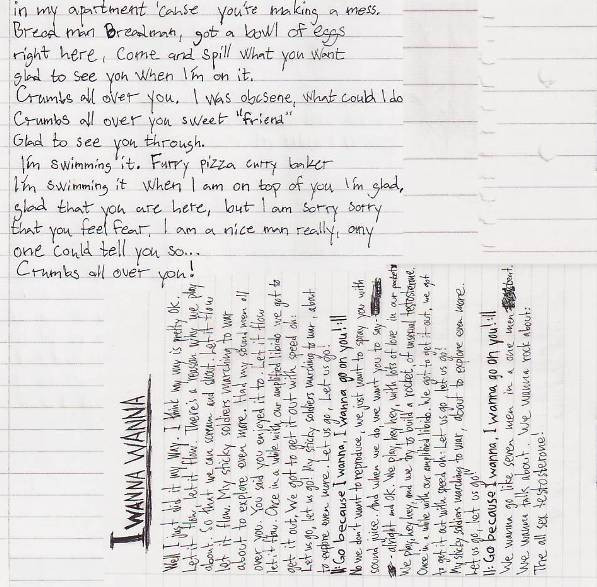 in my apartment 'cause you're making a mess.
Bread man Breadman, got a bowl of eggs
right here, Come and spill what you want
glad to see you when I'm on it.
Crumbs all over you. I was obscsene, what could I do
Crumbs all over you sweet "friend"
Glad to see you through.
I'm swimming it. Furry pizza curry baker
I'm swimming it when I am on top of you I'm glad,
glad that you are here, but I am sorry sorry
that you feel fear, I am a nice man really, any
one could tell you so...
Crumbs all over you!
I WANNA WANNA
Well I just did it my way. I think my way is pretty OK.
Let it flow, let it flow. There's a reason why we play
about. So that we can scream and shout. Let it flow
let it flow. My sticky soldiers marching to war
about to explore even more. Had my sound men all
over you. You said you enjoyed it to. Let it flow
let it flow. Once in a while with our amplified libido we got to
get it out. We got to get it out with speed oh:
Let us go, let us go! My sticky soldiers marching to war, about
to explore even more. Let us go, let us go!
||: Go because I wanna, I wanna go on you! :||
No we don't want to reproduce, we just want to spray you with
sound juice. And when we do, we want you to say -
- alright and OK. We play, hey hey, with lots of love in our
We play, hey, hey, and we try to build a rocket, of unusual testosterone.
Once in a while with our amplified libido. We got to get it out, we got
to get it out with speed oh: Let us go, let us go!
My sticky soldiers marching to war, about to explore even more.
Let us go, let us go!!
||: Go because I wanna, I wanna go on you! :||
We wanna go like seven men in a one men
We wanna talk about. We wanna rock about:
The all sex testosterone!